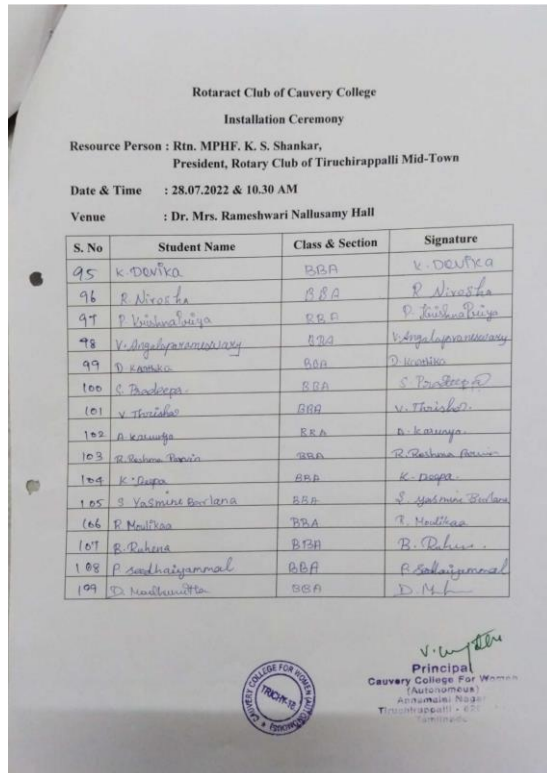 Rotaract Club of Cauvery College
Installation Ceremony
Resource Person : Rtn. MPHF. K. S. Shankar,
President, Rotary Club of Tiruchirappalli Mid-Town
Date & Time : 28.07.2022 & 10.30 AM
Venue : Dr. Mrs. Rameshwari Nallusamy Hall
S. No Student Name Class & Section Signature
95 K. Devika BBA K. Devika
96 R. Nirosha BBA R. Nirosha
97 P. Krishna Priya BBA P. Krishna Priya
98 V. Angalaparameswary BBA V. Angalaparameswary
99 D. Karthika BBA D. Karthika
100 S. Pradeepa. BBA S. Pradeepa
101 V. Thrisha BBA V. Thrisha.
102 A. Karunya BBA A. Karunya.
103 R. Reshma BBA R. Reshma
104 K. Deepa BBA K. Deepa.
105 S Yasmine Barlana BBA S. Yasmine Barlana
106 R. Moulikaa BBA R. Moulikaa
107 B. Ruhena BBA B.
108 P. sadhaiyammal BBA P.
109 D. BBA D.
CAUVERY COLLEGE FOR WOMEN (AUTONOMOUS)
TRICHY-18
Principal
Cauvery College For Women
(Autonomous)
Annamalai Nagar
Tiruchirappalli -
Tamilnadu